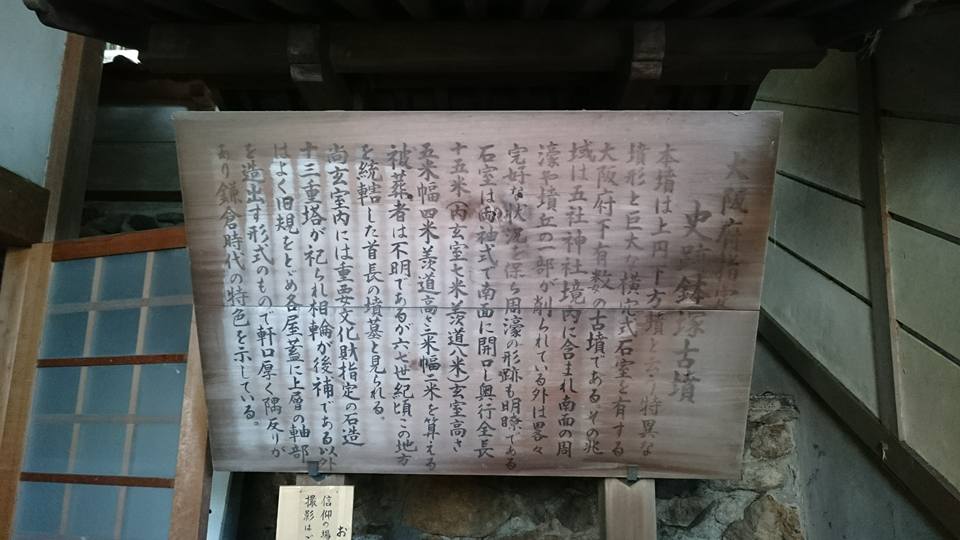 大阪府指定
史跡鉢塚古墳
本墳は上円下方墳と云う特異な
墳形と巨大な横穴式石室を有する
大阪府下有数の古墳であるその兆
域は五社神社境内に含まれ南面の周
濠や墳丘の一部が削られている外は畧々
完好な状況を保ち周濠の形跡も明瞭である
石室は両袖式で南面に開口し奥行全長
十五米(内玄室七米羨道八米)玄室高さ
五米幅四米羨道高さ二米幅二米を算える
被葬者は不明であるが六七世紀頃この地方
を統轄した首長の墳墓と見られる。
尚玄室内には重要文化財指定の石造
十三重塔が祀られ相輪が後補である以外
はよく旧規をとどめ各屋蓋に上層の軸部
を造出す形式のもので軒口厚く隅反りが
あり鎌倉時代の特色を示している。
お
信仰の場
撮影は